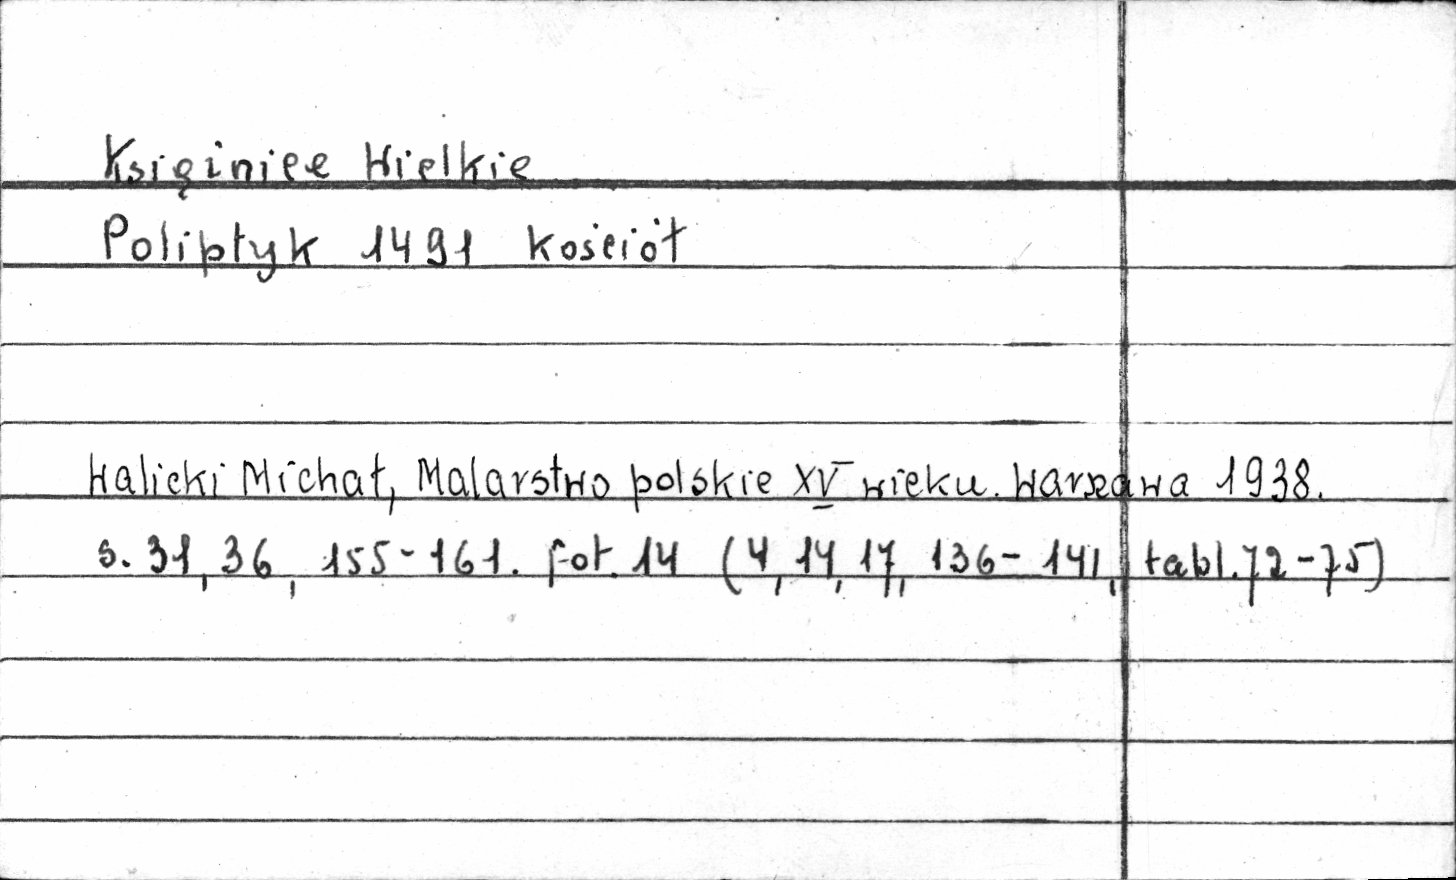 Księginice Wielkie
Poliptyk 1491 kościół
Walicki Michał, Malarstwo polskie XV wieku. Warszawa 1938.
s. 31, 36, 155-161. fot. 14 (4, 14, 17, 136-141, tabl. 72-75)